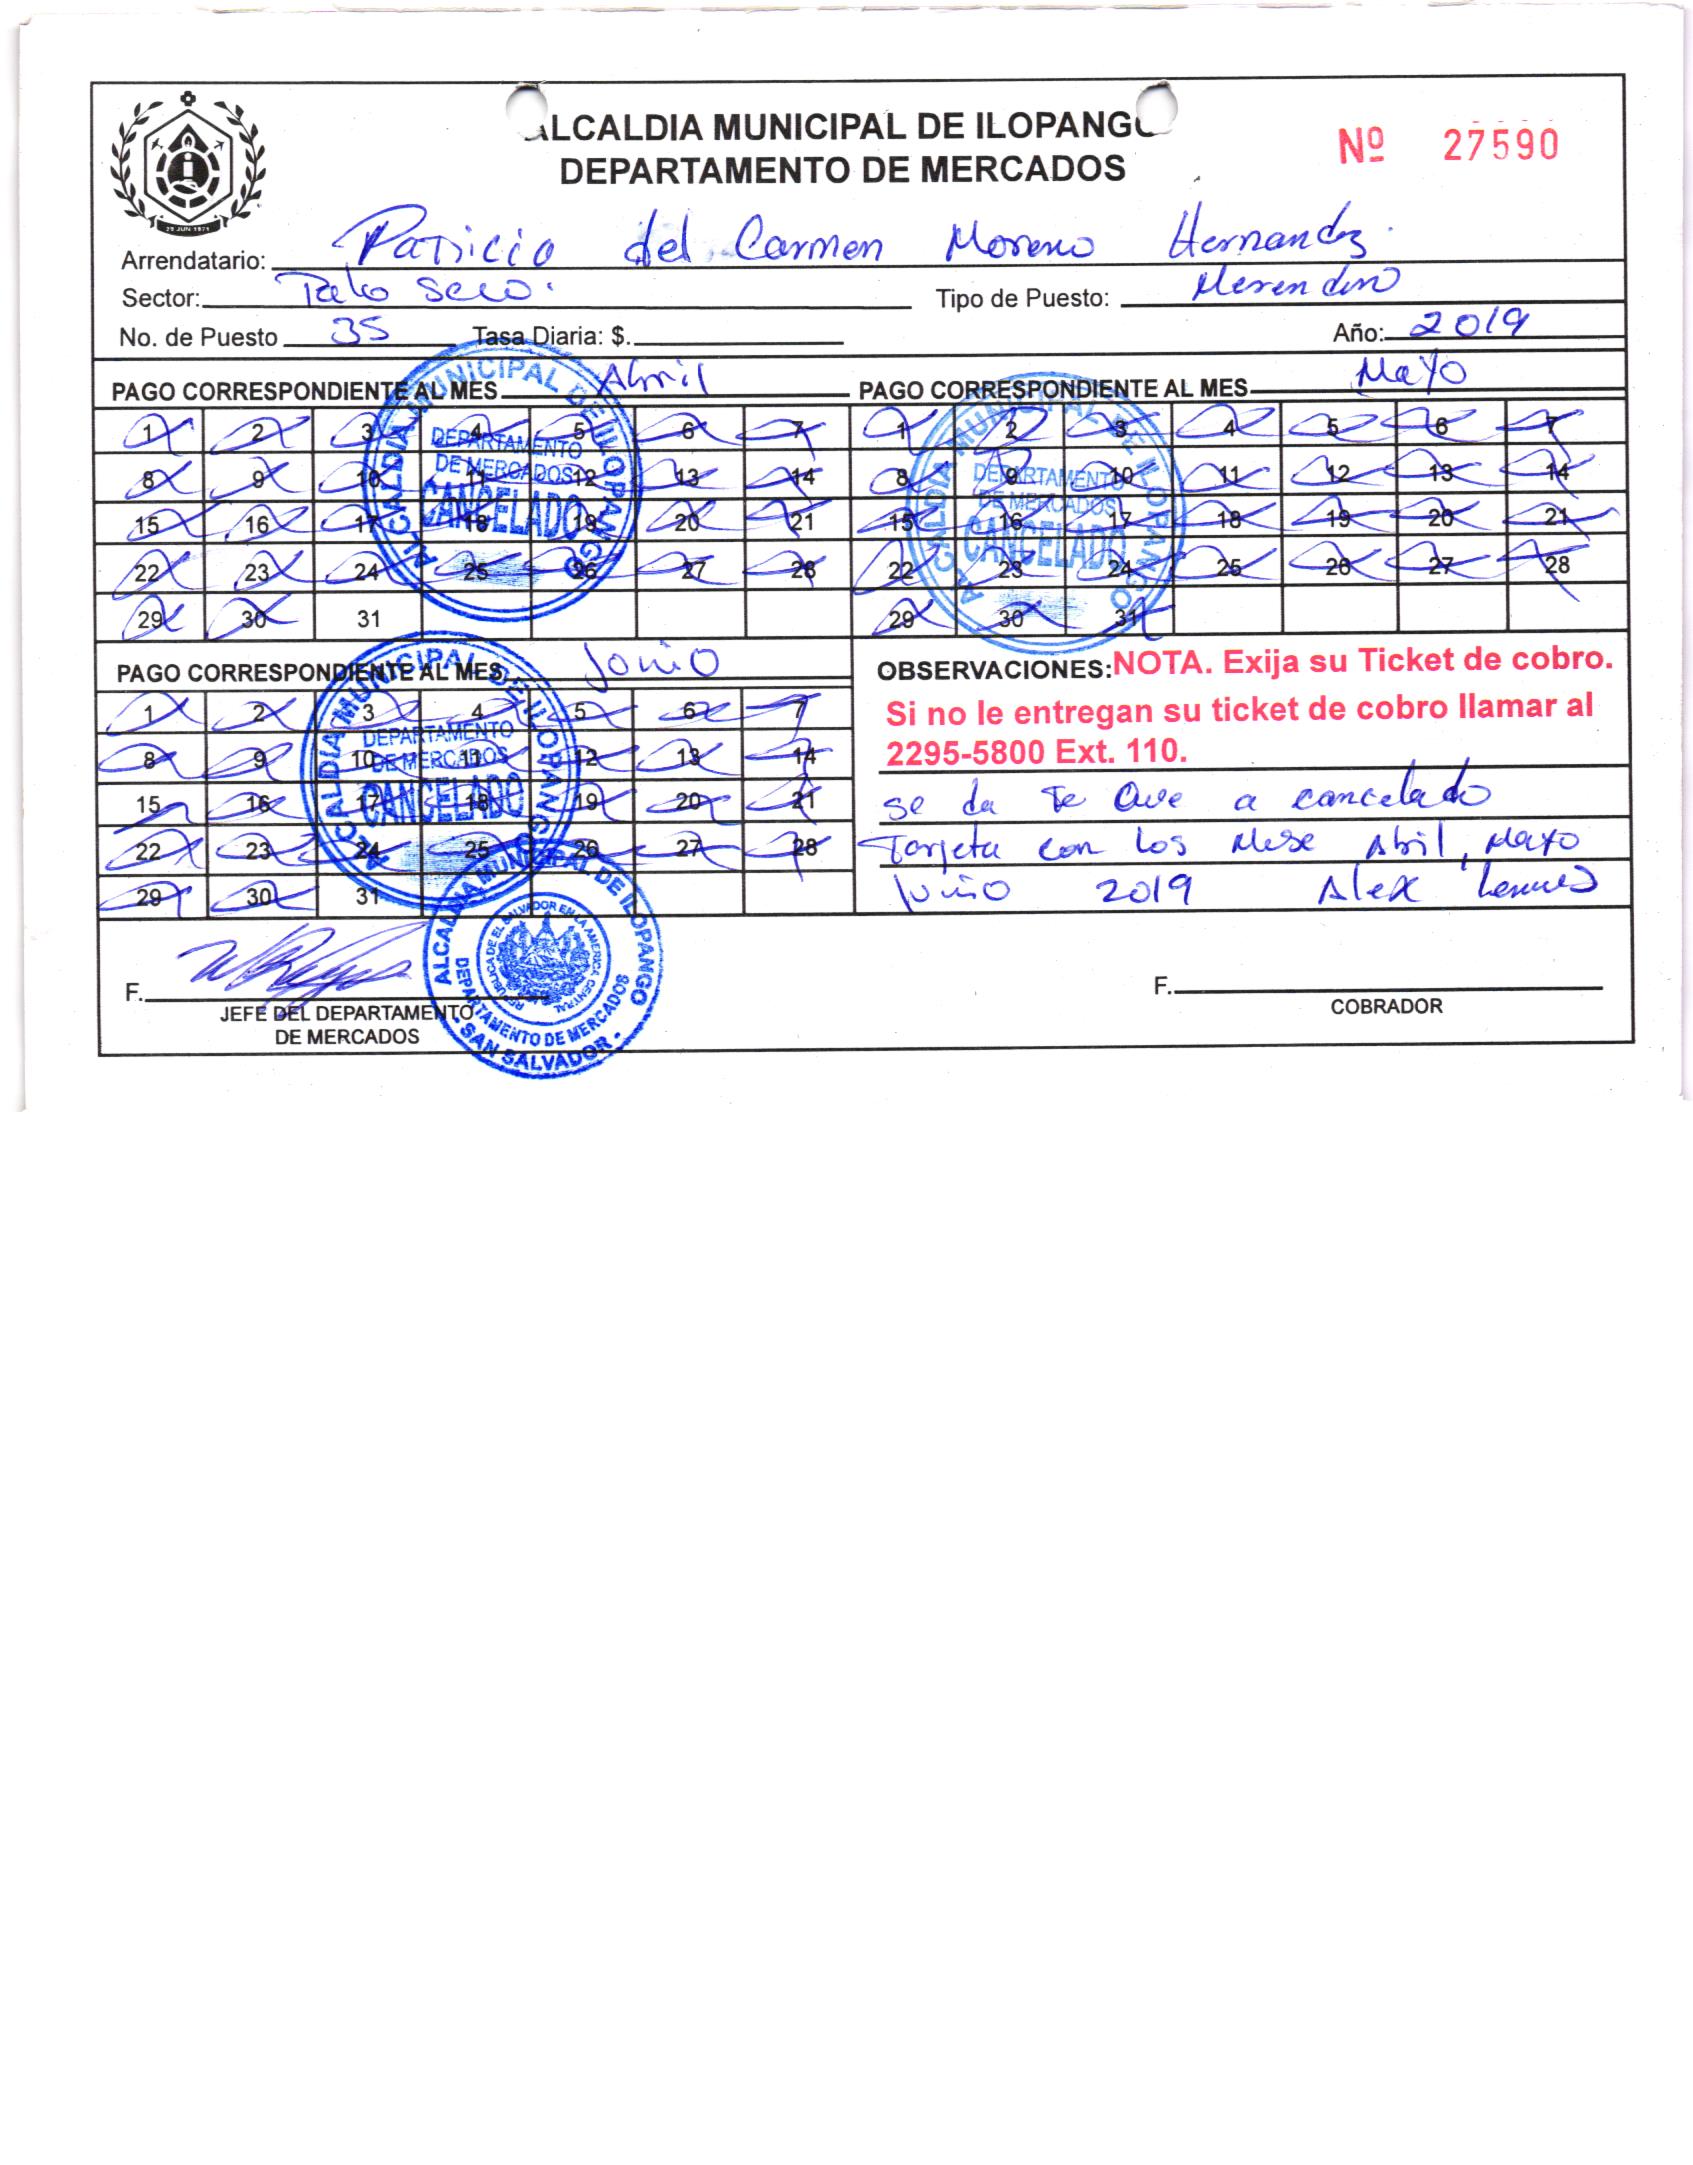 ALCALDIA MUNICIPAL DE ILOPANGO
DEPARTAMENTO DE MERCADOS
Nº 27590
29 JUN 1971
Arrendatario: Patricia del Carmen Moreno Hernandez.
Sector: Palo Seco. Tipo de Puesto:
No. de Puesto 35 Tasa Diaria: $. Año: 2019
PAGO CORRESPONDIENTE AL MES Abril PAGO CORRESPONDIENTE AL MES Mayo
1 2 3 4 5 6 7 1 2 3 4 5 6 7
8 9 10 11 12 13 14 8 9 10 11 12 13 14
15 16 17 18 19 20 21 15 16 17 18 19 20 21
22 23 24 25 26 27 28 22 23 24 25 26 27 28
29 30 31 29 30 31
ALCALDIA MUNICIPAL DE ILOPANGO
DEPARTAMENTO
DE MERCADOS
CANCELADO
ALCALDIA MUNICIPAL DE ILOPANGO
DEPARTAMENTO
DE MERCADOS
CANCELADO
PAGO CORRESPONDIENTE AL MES Junio
1 2 3 4 5 6 7
8 9 10 11 12 13 14
15 16 17 18 19 20 21
22 23 24 25 26 27 28
29 30 31
ALCALDIA MUNICIPAL DE ILOPANGO
DEPARTAMENTO
DE MERCADOS
CANCELADO
OBSERVACIONES: NOTA. Exija su Ticket de cobro.
Si no le entregan su ticket de cobro llamar al
2295-5800 Ext. 110.
se da Fe Que a cancelado
Tarjeta con los Mese Abril, Mayo
Junio 2019 Alex Lemus
ALCALDIA MUNICIPAL DE ILOPANGO
REPUBLICA DE EL SALVADOR EN LA AMERICA CENTRAL
DEPARTAMENTO DE MERCADOS
- SAN SALVADOR -
F.
JEFE DEL DEPARTAMENTO
DE MERCADOS
F.
COBRADOR